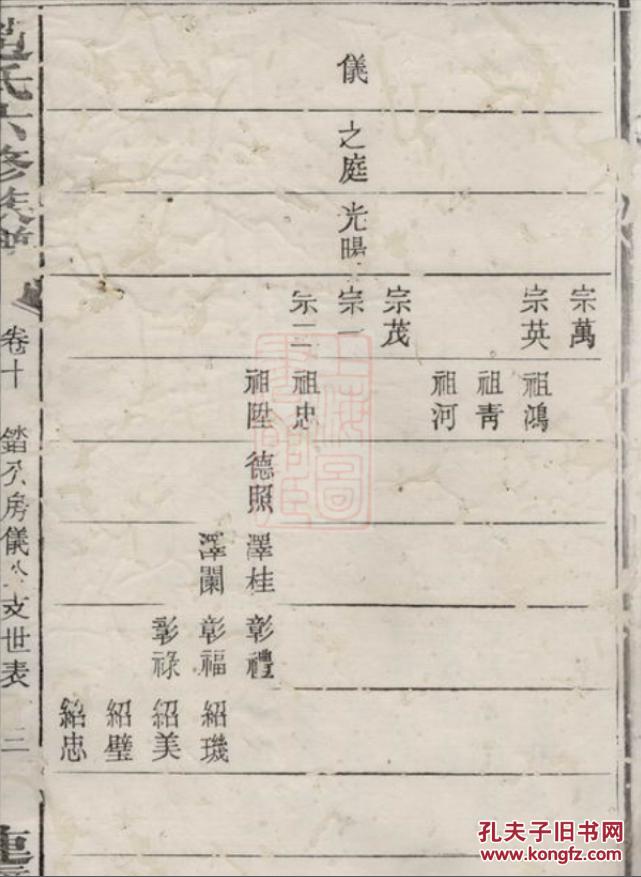 儀
之庭
光暘
宗萬
宗英
宗茂
宗一
宗二
祖鴻
祖靑
祖河
祖忠
祖陞
德照
澤桂
澤闌
彰禮
彰福
彰祿
紹璣
紹美
紹璧
紹忠
氏六修族譜
卷十
鍇公房儀公支世表
三
上海圖
孔夫子旧书网
www.kongfz.com